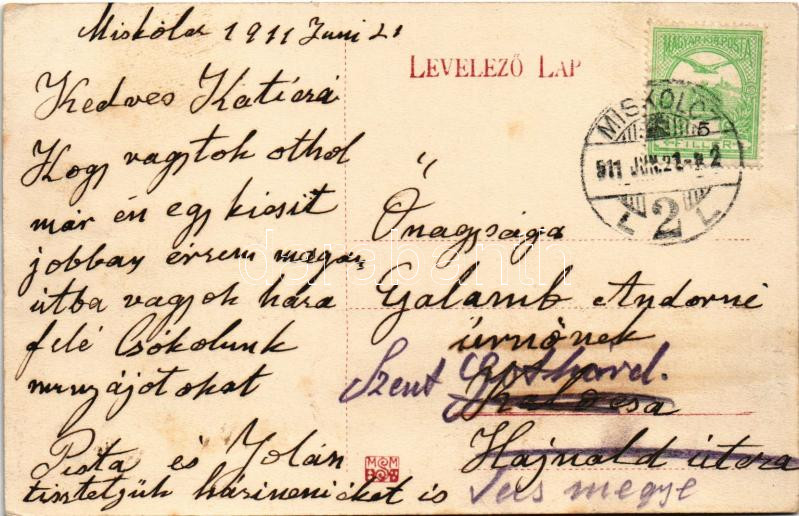 Miskolcz 1911 Juni 21
LEVELEZŐ LAP
MAGYAR KIR. POSTA
5
FILLÉR
MISKOLCZ
911 JUN.21
2
L L
Kedves Katicza
Hogy vagytok othol
már én egy kicsit
jobban érzem magam
útba vagyok haza
felé Csókolunk
Pista és Jolán
tisztelyük is
Őnagysága
Galamb Andorné
úrnőnek
Szent Gothard.
Kalocsa
Hajnald útcza
Vas megye